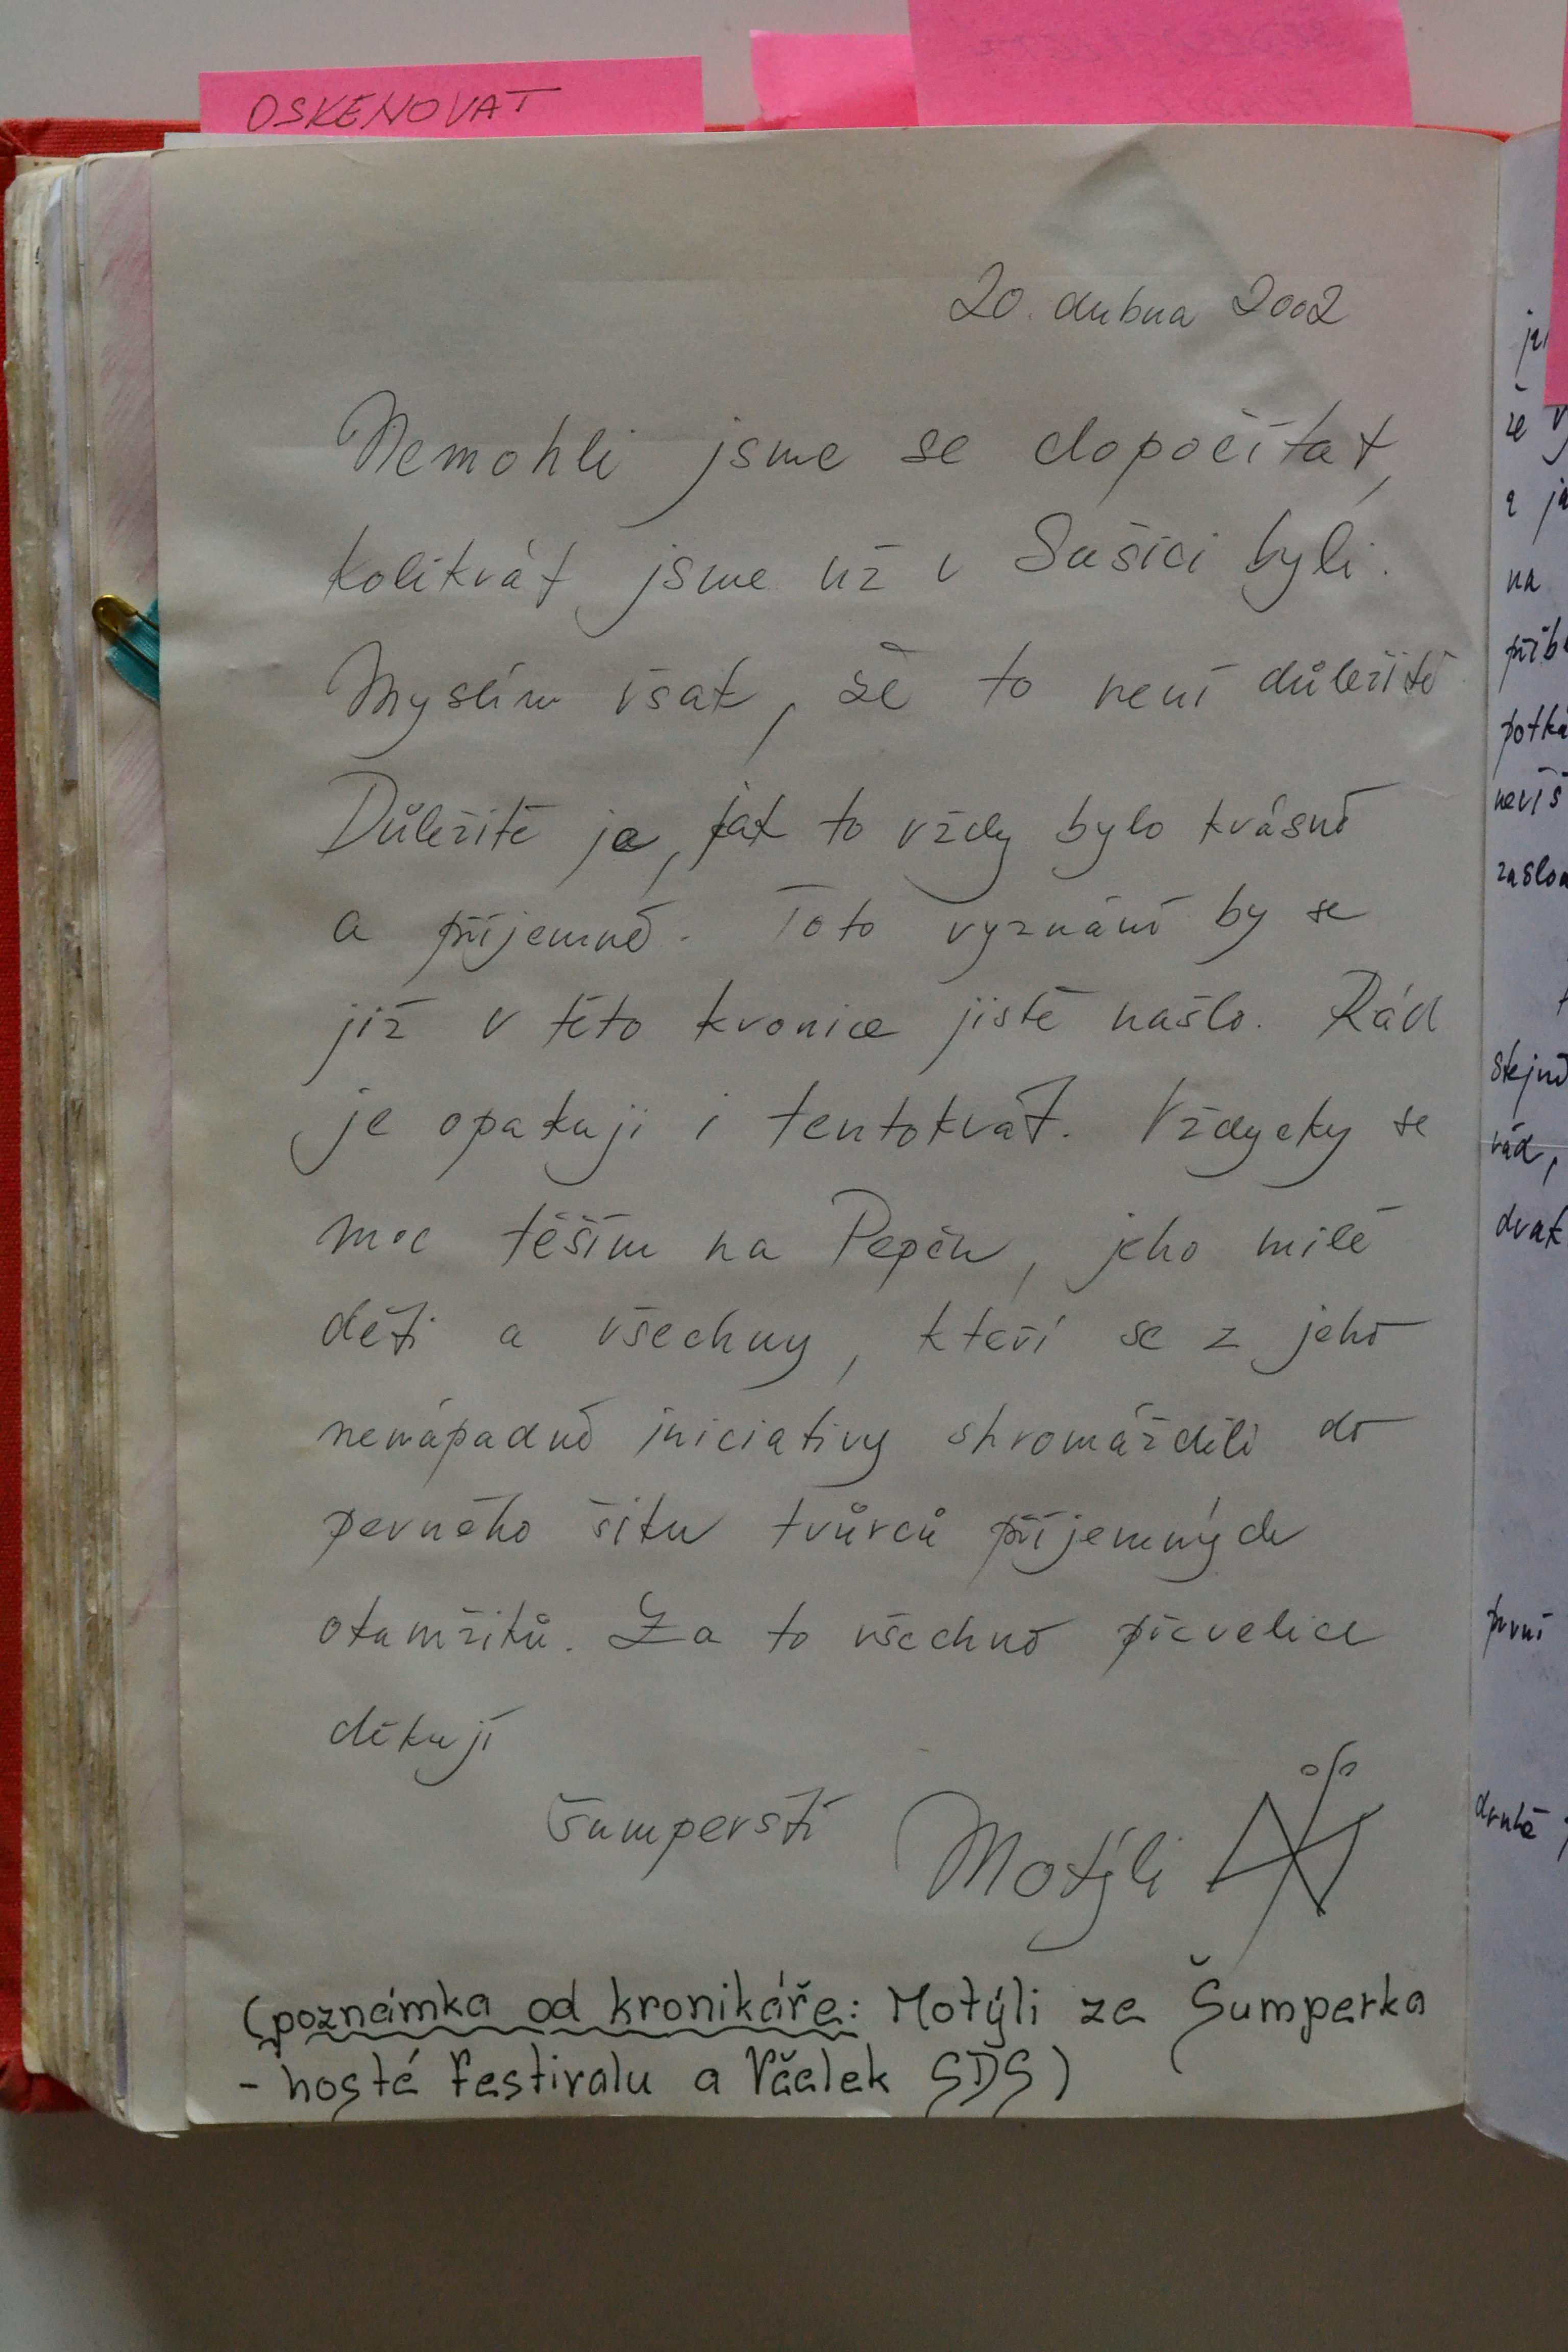 OSKENOVAT
20. dubna 2002
Nemohli jsme se dopočítat,
kolikrát jsme už v Sušici byli.
Myslím však, že to není důležité
Důležité je, jak to vždy bylo krásné
a příjemné. Toto vyznání by se
již v této kronice jistě našlo. Rád
je opakuji i tentokrát. Vždycky se
moc těším na Pepču, jeho milé
děti a všechny, kteří se z jeho
nenápadné iniciativy shromáždili do
pevného šiku tvůrců příjemných
okamžiků. Za to všechno převelice
děkují
Šumperští Motýli
(poznámka od kronikáře: Motýli ze Šumperka
- hosté festivalu a Včelek SDS)
že
na
potká
nevíš
stejně
rád,
první
druhé